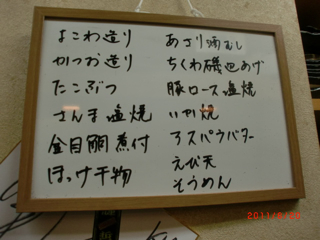 よこわ造り
かつお造り
たこぶつ
さんま塩焼
金目鯛煮付
ほっけ干物
あさり酒むし
ちくわ磯辺あげ
豚ロース塩焼
いか焼
アスパラバター
えび天
そうめん